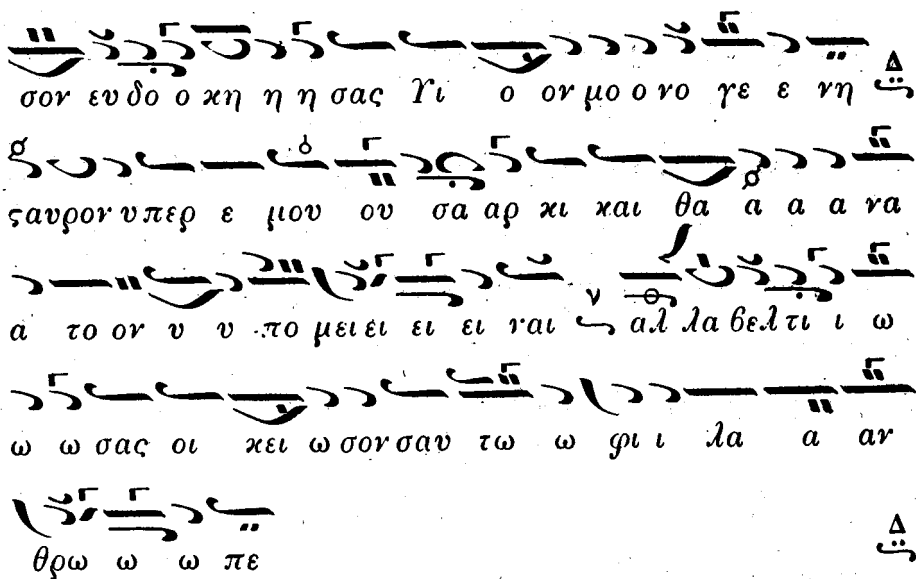 σον ευ δο ο κη η η σας Υι ο ον μο ο νο γε ε νη Δ
ςαυρον υπερ ε μου ου σα αρ κι και θα α α α να
α το ον υ υ πο μει ει ει ει ναι ν αλ λα βελ τι ι ω
ω ω σας οι κει ω σον σαυ τω ω φι ι λα α αν
θρω ω ω πε Δ